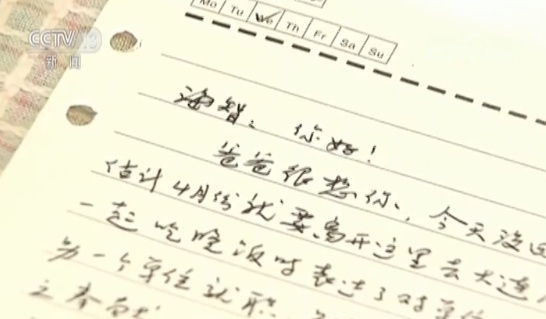 CCTV 13
新闻
Mo Tu We Th Fr Sa Su
海智：你好！
爸爸很想你，今天没
估计4月份就要离开这里去大连
一起吃晚饭时表达了对单位
另一个单位就职